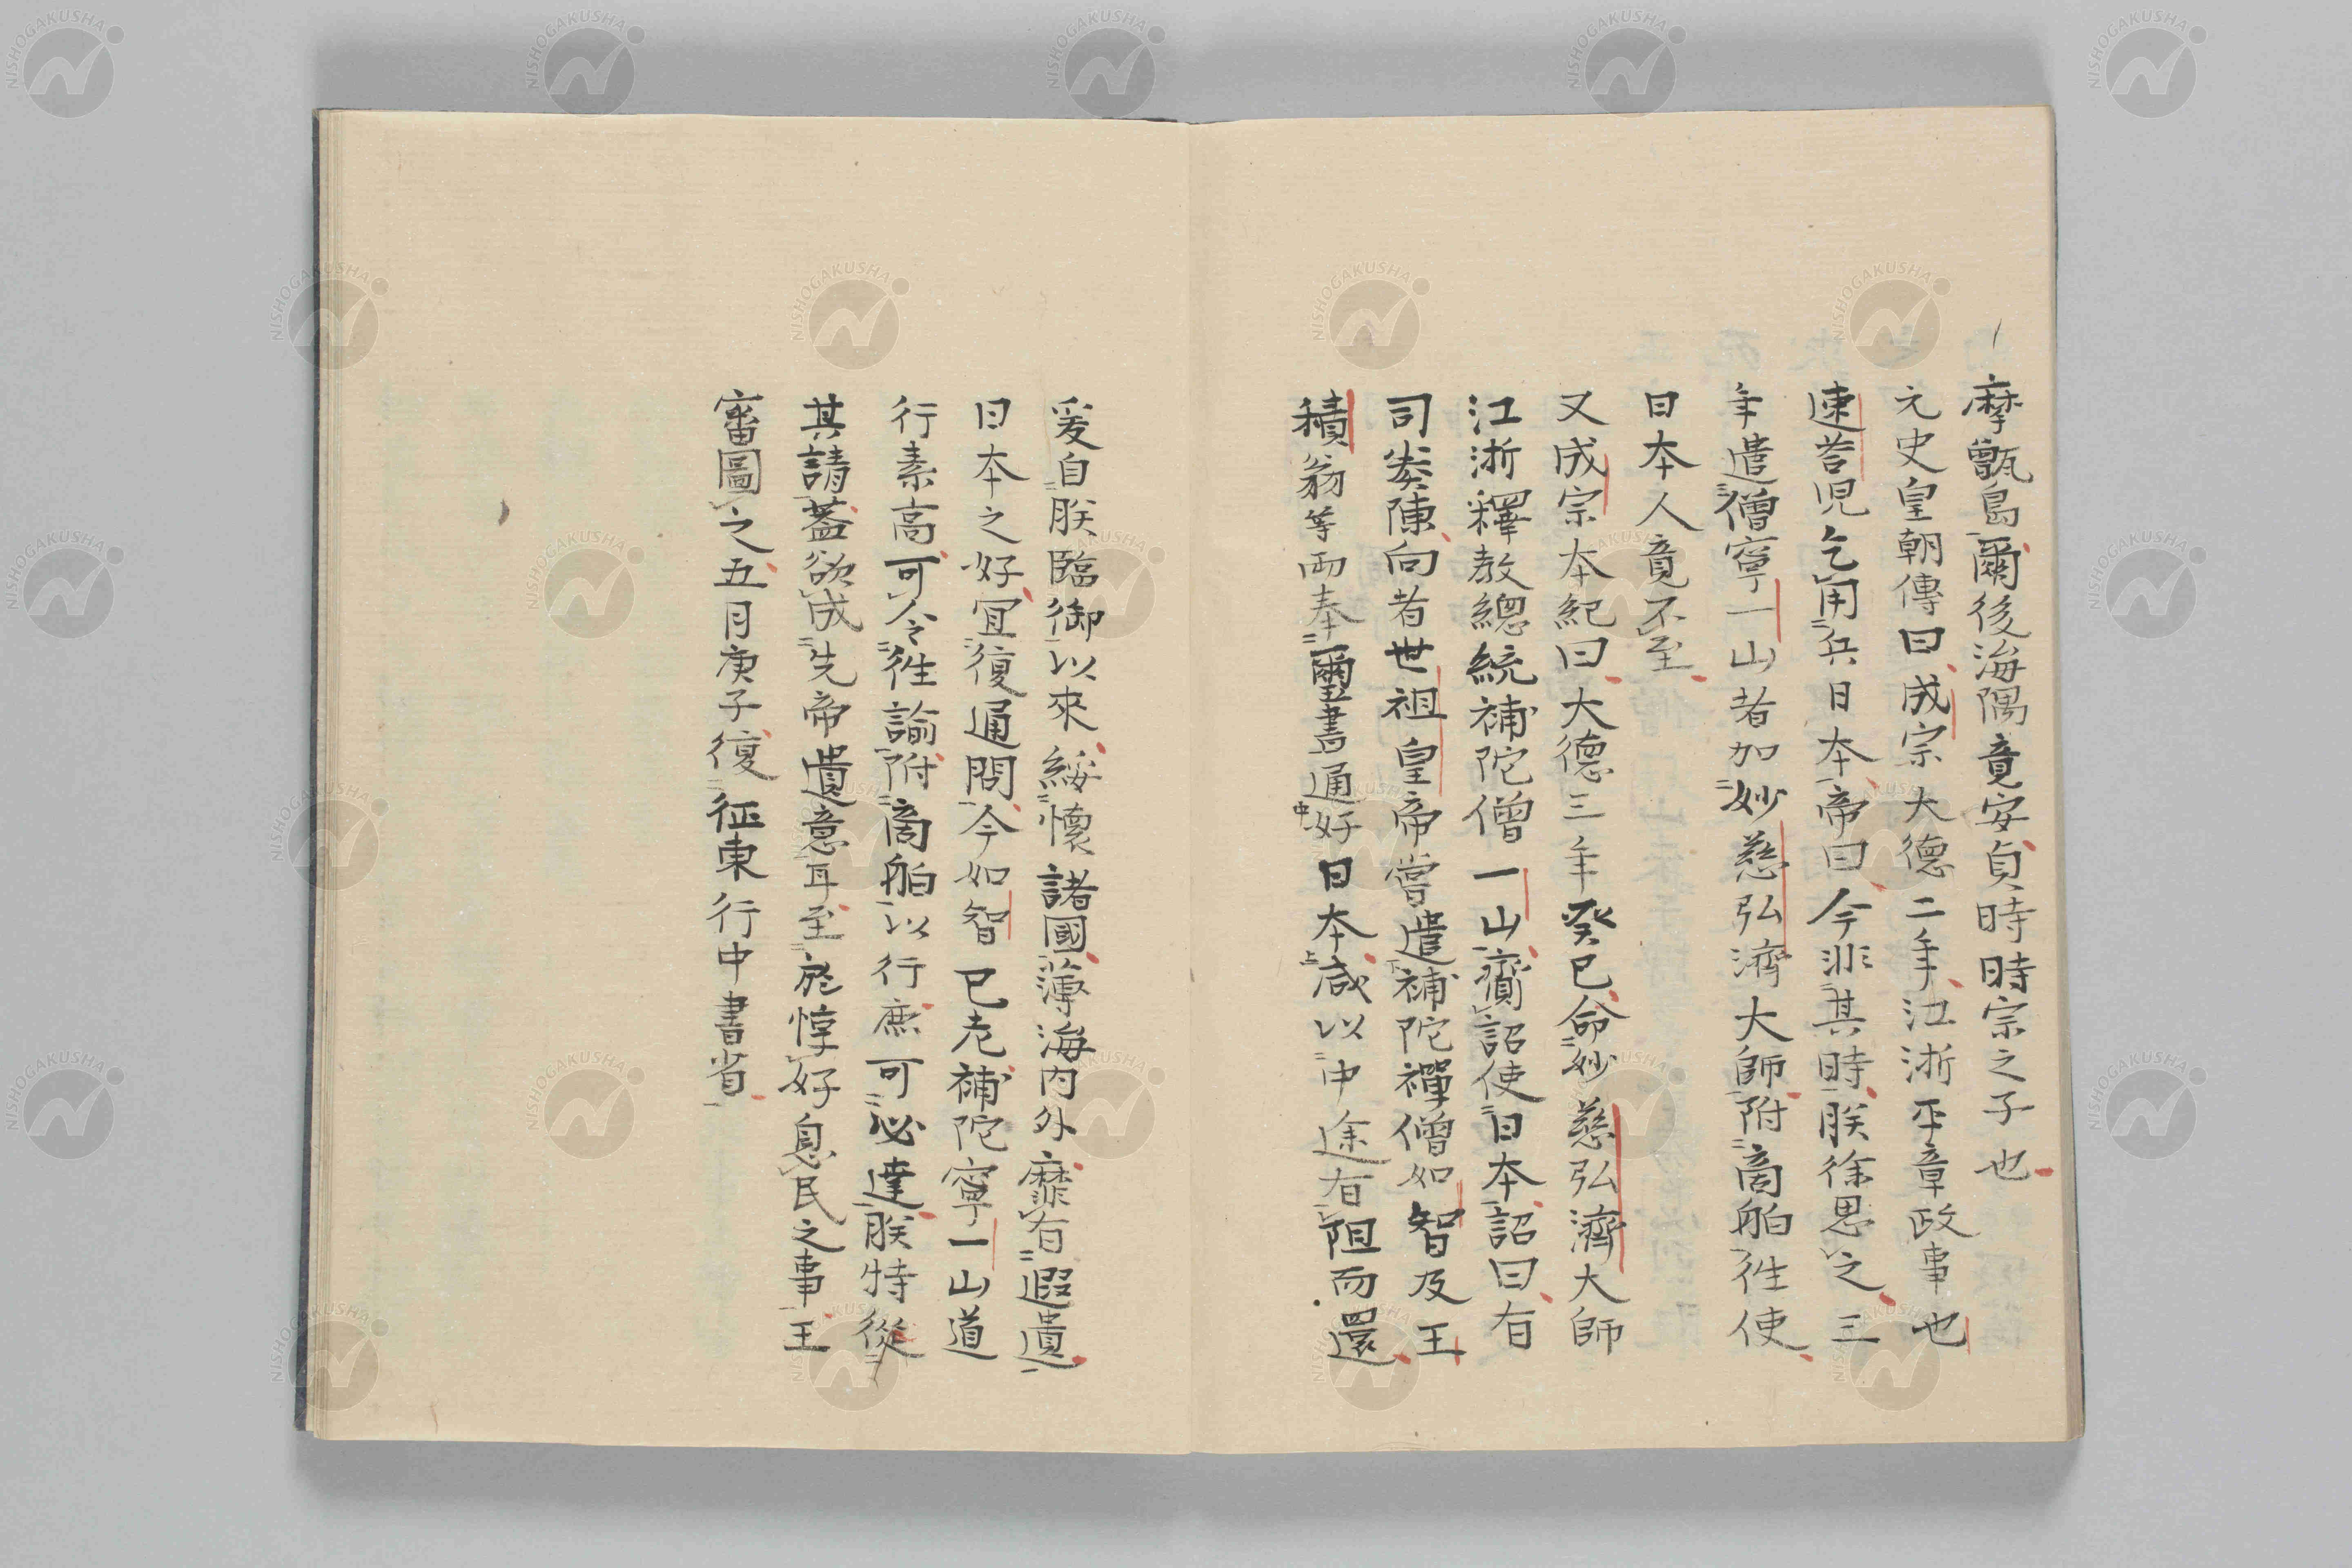 摩甑島爾後海隅竟安貞時時宗之子也
元史皇朝傳曰成宗大德二年江浙平章政事也
速荅児乞用兵日本帝曰今非其時朕徐思之三
年遣僧寧一山者加妙慈弘濟大師附商舶往使
日本人竟不至
又成宗本紀曰大德三年癸巳命妙慈弘濟大師
江浙釋教總統補陀僧一山齎詔使日本詔曰有
司奏陳向者世祖皇帝嘗遣補陀禪僧如智及王
積翁等兩奉璽書通好日本咸以中途有阻而還
爰自朕臨御以來綏懷諸國薄海内外靡有遐遺
日本之好宜復通問今如智已老補陀寧一山道
行素高可令往諭附商舶以行庶可必達朕特從
其請蓋欲成先帝遺意耳至於惇好息民之事王
審圖之五月庚子復征東行中書省
中
上
下
NISHOGAKUSHA